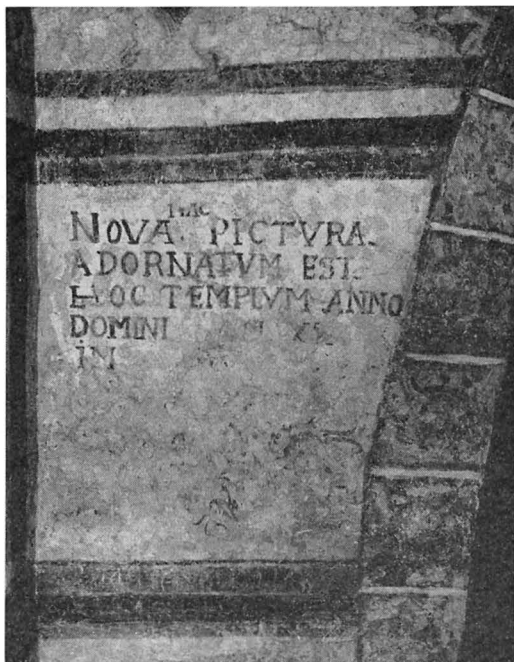 HAC
NOVA PICTVRA.
ADORNATVM EST.
HOC TEMPLVM ANNO
DOMINI
IN